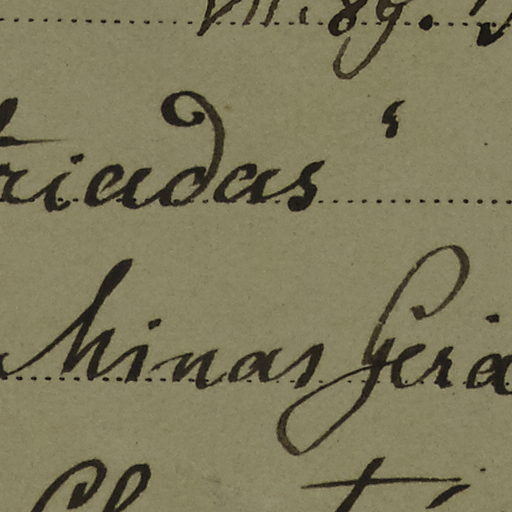 VII.89.
riadas"
Minas Gera